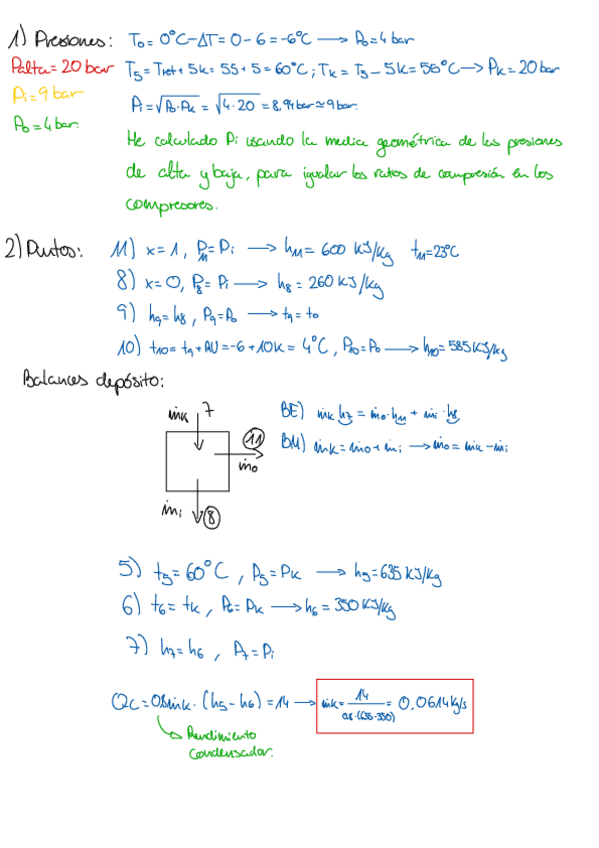 1) Presiones: T₀= 0°C-ΔT= 0-6=-6°C → P₀=4 bar
Palta=20 bar T₅=Tret+5K=55+5=60°C; Tₖ=T₅-5K=55°C → Pₖ=20 bar
Pi=9 bar
Pi=√P₀·Pₖ = √4·20 = 8,94bar≃9bar.
P₀=4 bar.
He calculado Pi usando la media geométrica de las presiones
de alta y baja, para igualar los ratios de compresión en los
compresores.
2) Puntos: 11) x=1, P₁₁=Pi → h₁₁= 600 KJ/Kg t₁₁=23°C
8) x=0, P₈= Pi → h₈ = 260 KJ/Kg
9) h₉=h₈, P₉=P₀ → t₉=t₀
10) t₁₀= t₉+RU=-6+10K= 4°C, P₁₀=P₀ → h₁₀=585KJ/Kg
Balances depósito:
ṁₖ 7
BE) ṁₖ·h₇ = ṁ₀·h₁₁ + ṁi·h₈
11
BM) ṁₖ=ṁ₀+ṁi → ṁ₀= ṁₖ-ṁi
ṁ₀
ṁi 8
5) t₅=60°C, P₅=Pₖ → h₅=635 KJ/Kg
6) t₆=tₖ, P₆=Pₖ → h₆=350KJ/Kg
7) h₇=h₆, P₇=Pi
Qc=0,8ṁₖ·(h₅-h₆)=14 → ṁₖ= 14 / 0,8·(635-350) = 0,0614Kg/s
Rendimiento
condensador.